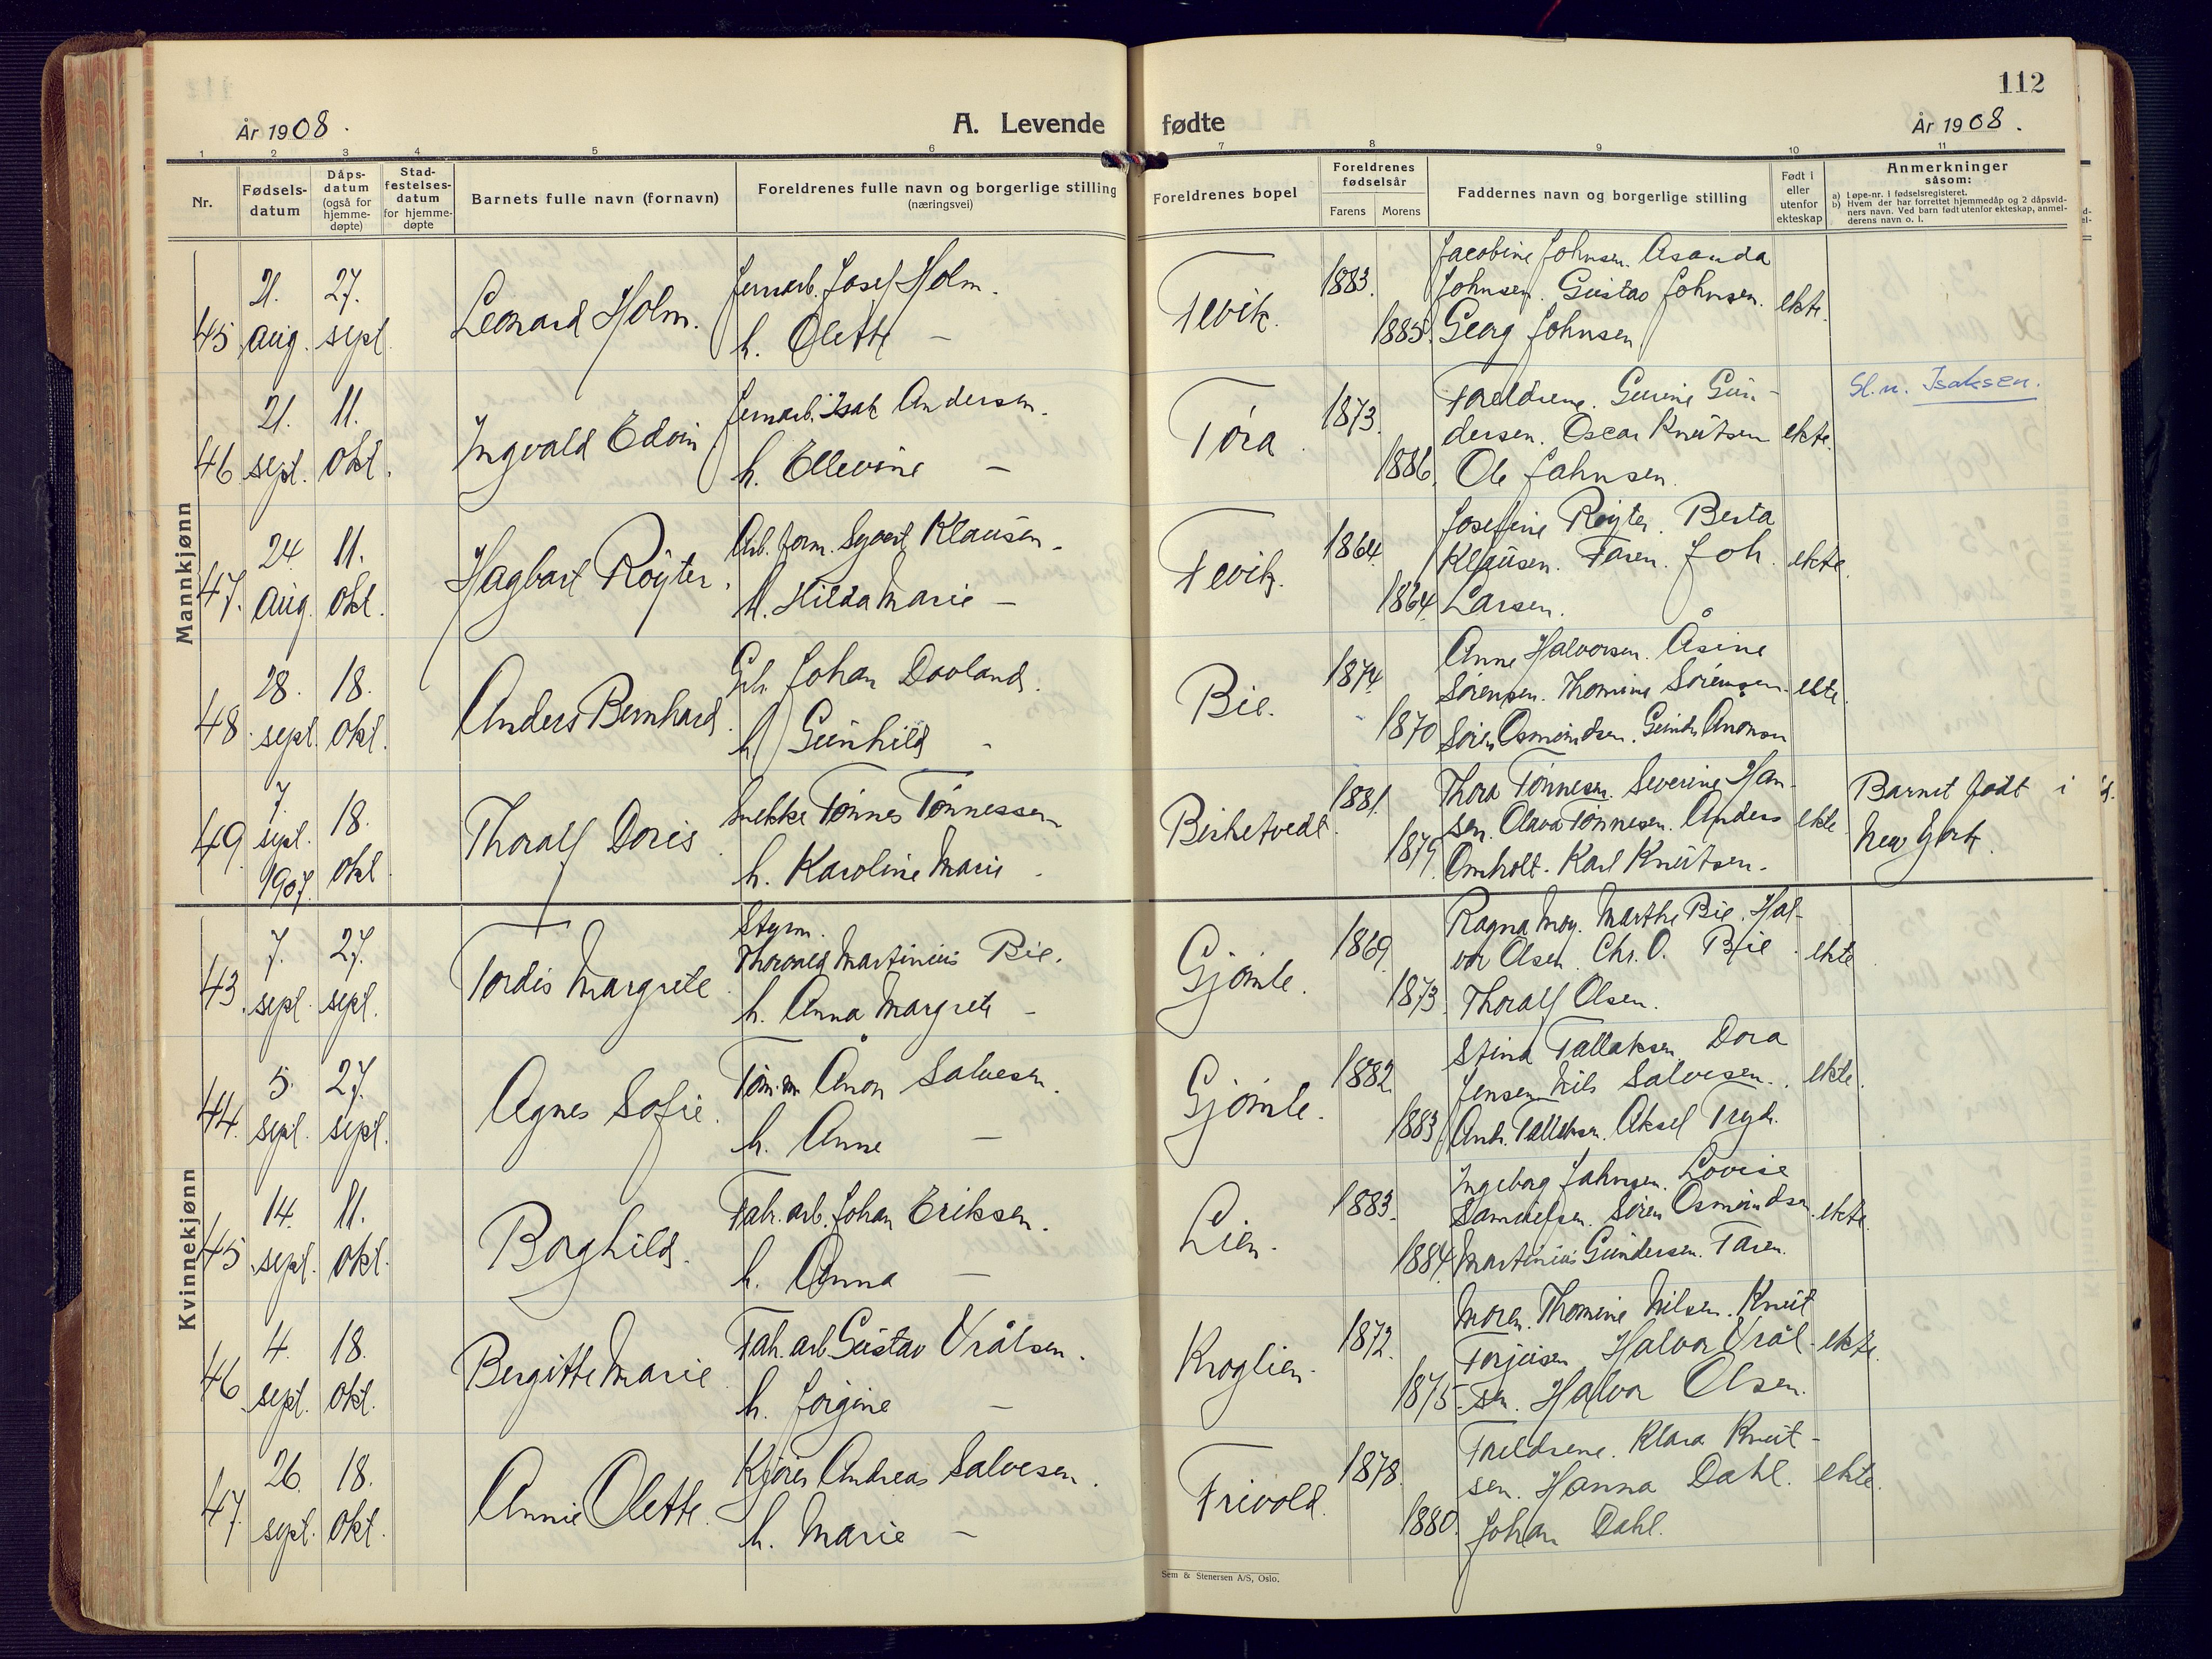 112
År 1908.
A. Levende fødte
År 1908.
1 2 3 4 5 6 7 8 9 10 11
Nr.
Fødsels-
datum
Dåps-
datum
(også for
hjemme-
døpte)
Stad-
festelses-
datum
for hjemme-
døpte
Barnets fulle navn (fornavn)
Foreldrenes fulle navn og borgerlige stilling
(næringsvei)
Foreldrenes bopel
Foreldrenes
fødselsår
Farens Morens
Faddernes navn og borgerlige stilling
Født i
eller
utenfor
ekteskap
Anmerkninger
såsom:
a) Løpe-nr. i fødselsregisteret.
b) Hvem der har forrettet hjemmedåp og 2 dåpsvid-
ners navn. Ved barn født utenfor ekteskap, anmel-
derens navn o. l.
Mannkjønn
45
21.
aug.
27.
sept.
Leonard Holm.
Jernarb. Josef Holm.
h. Olette —
Fevik.
1883.
1885.
Jacobine Johnsen. Asanda
Johnsen. Gustav Johnsen.
Georg Johnsen
ekte.
46.
21.
sept.
11.
okt.
Ingvald Edvin
Jernarb. Isak Andersen.
h. Ellevine —
Tøra.
1873.
1886.
Foreldrene. Gurine Gun-
dersen. Oscar Knutsen
Ole Jahnsen.
ekte.
Sl.n. Isaksen.
47.
24.
aug.
11.
okt.
Hagbart Røyter.
Arb. form. Syvert Klausen.
h. Hilda Marie —
Fevik.
1864.
1864.
Josefine Røyter. Berta
Klausen. Faren. Joh.
Larsen.
ekte.
48.
28.
sept.
18.
okt.
Anders Bernhard.
Gbr. Johan Dovland.
h. Gunhild —
Bie.
1874.
1870
Anne Halvorsen. Åsine
Sørensen. Thomine Sørensen.
Søren Osmundsen. GunderÅnonsen
ekte.
49.
7.
sept.
1907.
18.
okt.
Thoralf Doris.
Snekker Tønnes Tønnessen
h. Karoline Marie —
Birketvedt.
1881.
1879.
Thora Tønnesen. Severine Han-
sen. Olava Tønnesen. Anders
Omholt. Karl Knutsen.
ekte.
Barnet født i
New York.
Kvinnekjønn
43.
7.
sept.
27.
sept.
Tordis Margrete.
Styrm.
Thorvald Martinius Bie.
h. Anna Margrete —
Gjømle.
1869.
1873.
Ragna Moy. Marthe Bie. Hal-
vor Olsen. Chr. O. Bie.
Thoralf Olsen.
ekte.
44.
5.
sept.
27.
sept.
Agnes Sofie.
Tøm.m. Ånon Salvesen.
h. Anne —
Gjømle.
1882
1883.
Stina Tallaksen. Dora
Jensen. Nils Salvesen.
Andr. Tallaksen. Aksel Trydr.
ekte.
45
14.
sept.
11.
okt.
Borghild.
Fabr. arb. Johan Eriksen.
h. Anna —
Lien.
1883.
1884.
Ingeborg Jahnsen. Lovise
Samuelsen. Søren Osmundsen.
Martinius Gundersen. Faren.
ekte.
46
4.
sept.
18.
okt.
Bergitte Marie
Fabr. arb. Gustav Vrålsen.
h. Jørgine —
Kroglien.
1872.
1875.
Moren. Thomine Nilsen. Knut
Torjusen. Halvor Vrål-
sen. Halvor Olsen.
ekte.
47.
26.
sept.
18.
okt.
Annie Olette.
Kjører Andreas Salvesen.
h. Marie —
Frivold.
1878.
1880.
Foreldrene. Klara Knut-
sen. Hanna Dahl.
Johan Dahl.
ekte.
Sem & Stenersen A/S, Oslo.